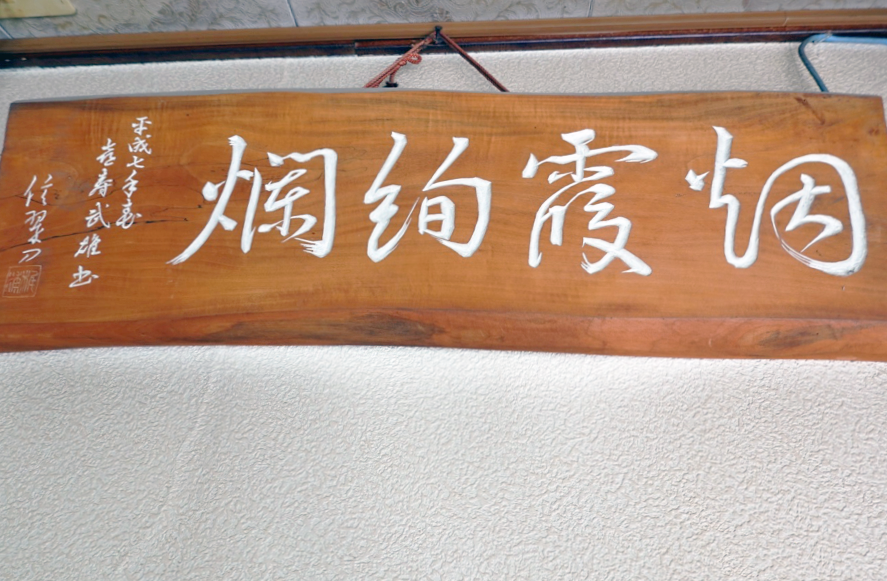 烟霞絢爛
平成七年春
喜寿武雄書
信翠刀